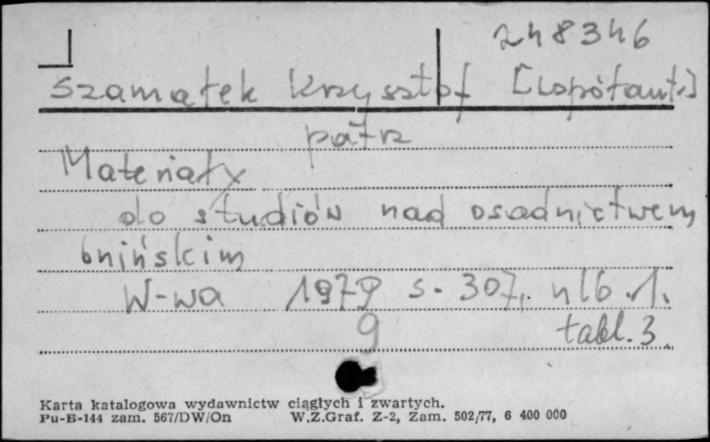 248346
Szamałek Krzysztof [współaut.]
patrz
Materiały
do studiów nad osadnictwem
bnińskim
W-wa 1979 s. 307, nlb. 1.
9 tabl. 3
Karta katalogowa wydawnictw ciągłych i zwartych.
Pu-B-144 zam. 567/DW/On W.Z.Graf. Z-2, Zam. 502/77, 6 400 000